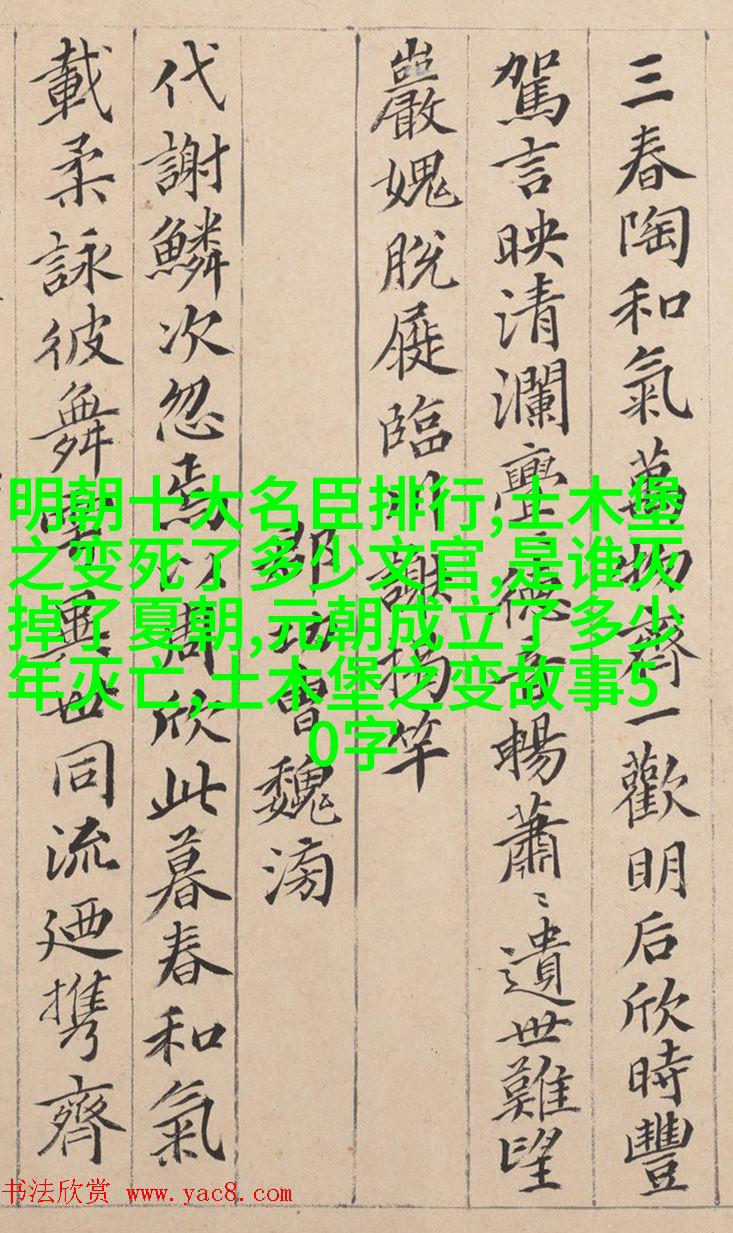 三春陶和氣萬物齊一歡明后欣時豐
駕言映清瀾亹〻德音暢蕭〻遺世難望
巖愧脫屣臨川謝揭竿
郡功曹魏滂
代謝鱗次忽焉以周欣此暮春和氣
載柔詠彼舞雩異世同流迺携齊
明朝十大名臣排行,土木堡
之变死了多少文官,是谁灭
掉了夏朝,元朝成立了多少
年灭亡,土木堡之变故事5
0字
书法欣赏 www.yac8.com